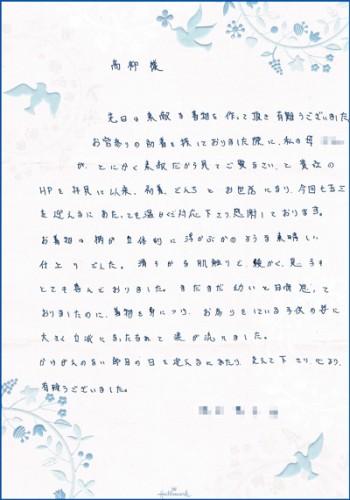 高柳 様
先日は素敵な着物を作って頂き有難うございました
お宮参りの初着を探しておりました際に、私の母
が、とにかく素敵だから見てご覧なさい、と貴社の
HPを拝見し以来、初着、どんちょとお世話になり、今回七五三
を迎えるにあたっても温かくご対応下さり感謝しております。
お着物は柄が立体的に浮かぶかのような素晴しい
仕上りでした。滑らかな肌触りと、艶かく、見る
とても喜んでおりました。まだまだ幼いと日頃思って
おりましたのに、着物を身につけ、お参りをしている子供の姿に
大きく立派になったなぁと涙が流れました。
かけがえのない節目の日を迎えるにあたり、支えて下さり心より、
有難うございました。
Hallmark